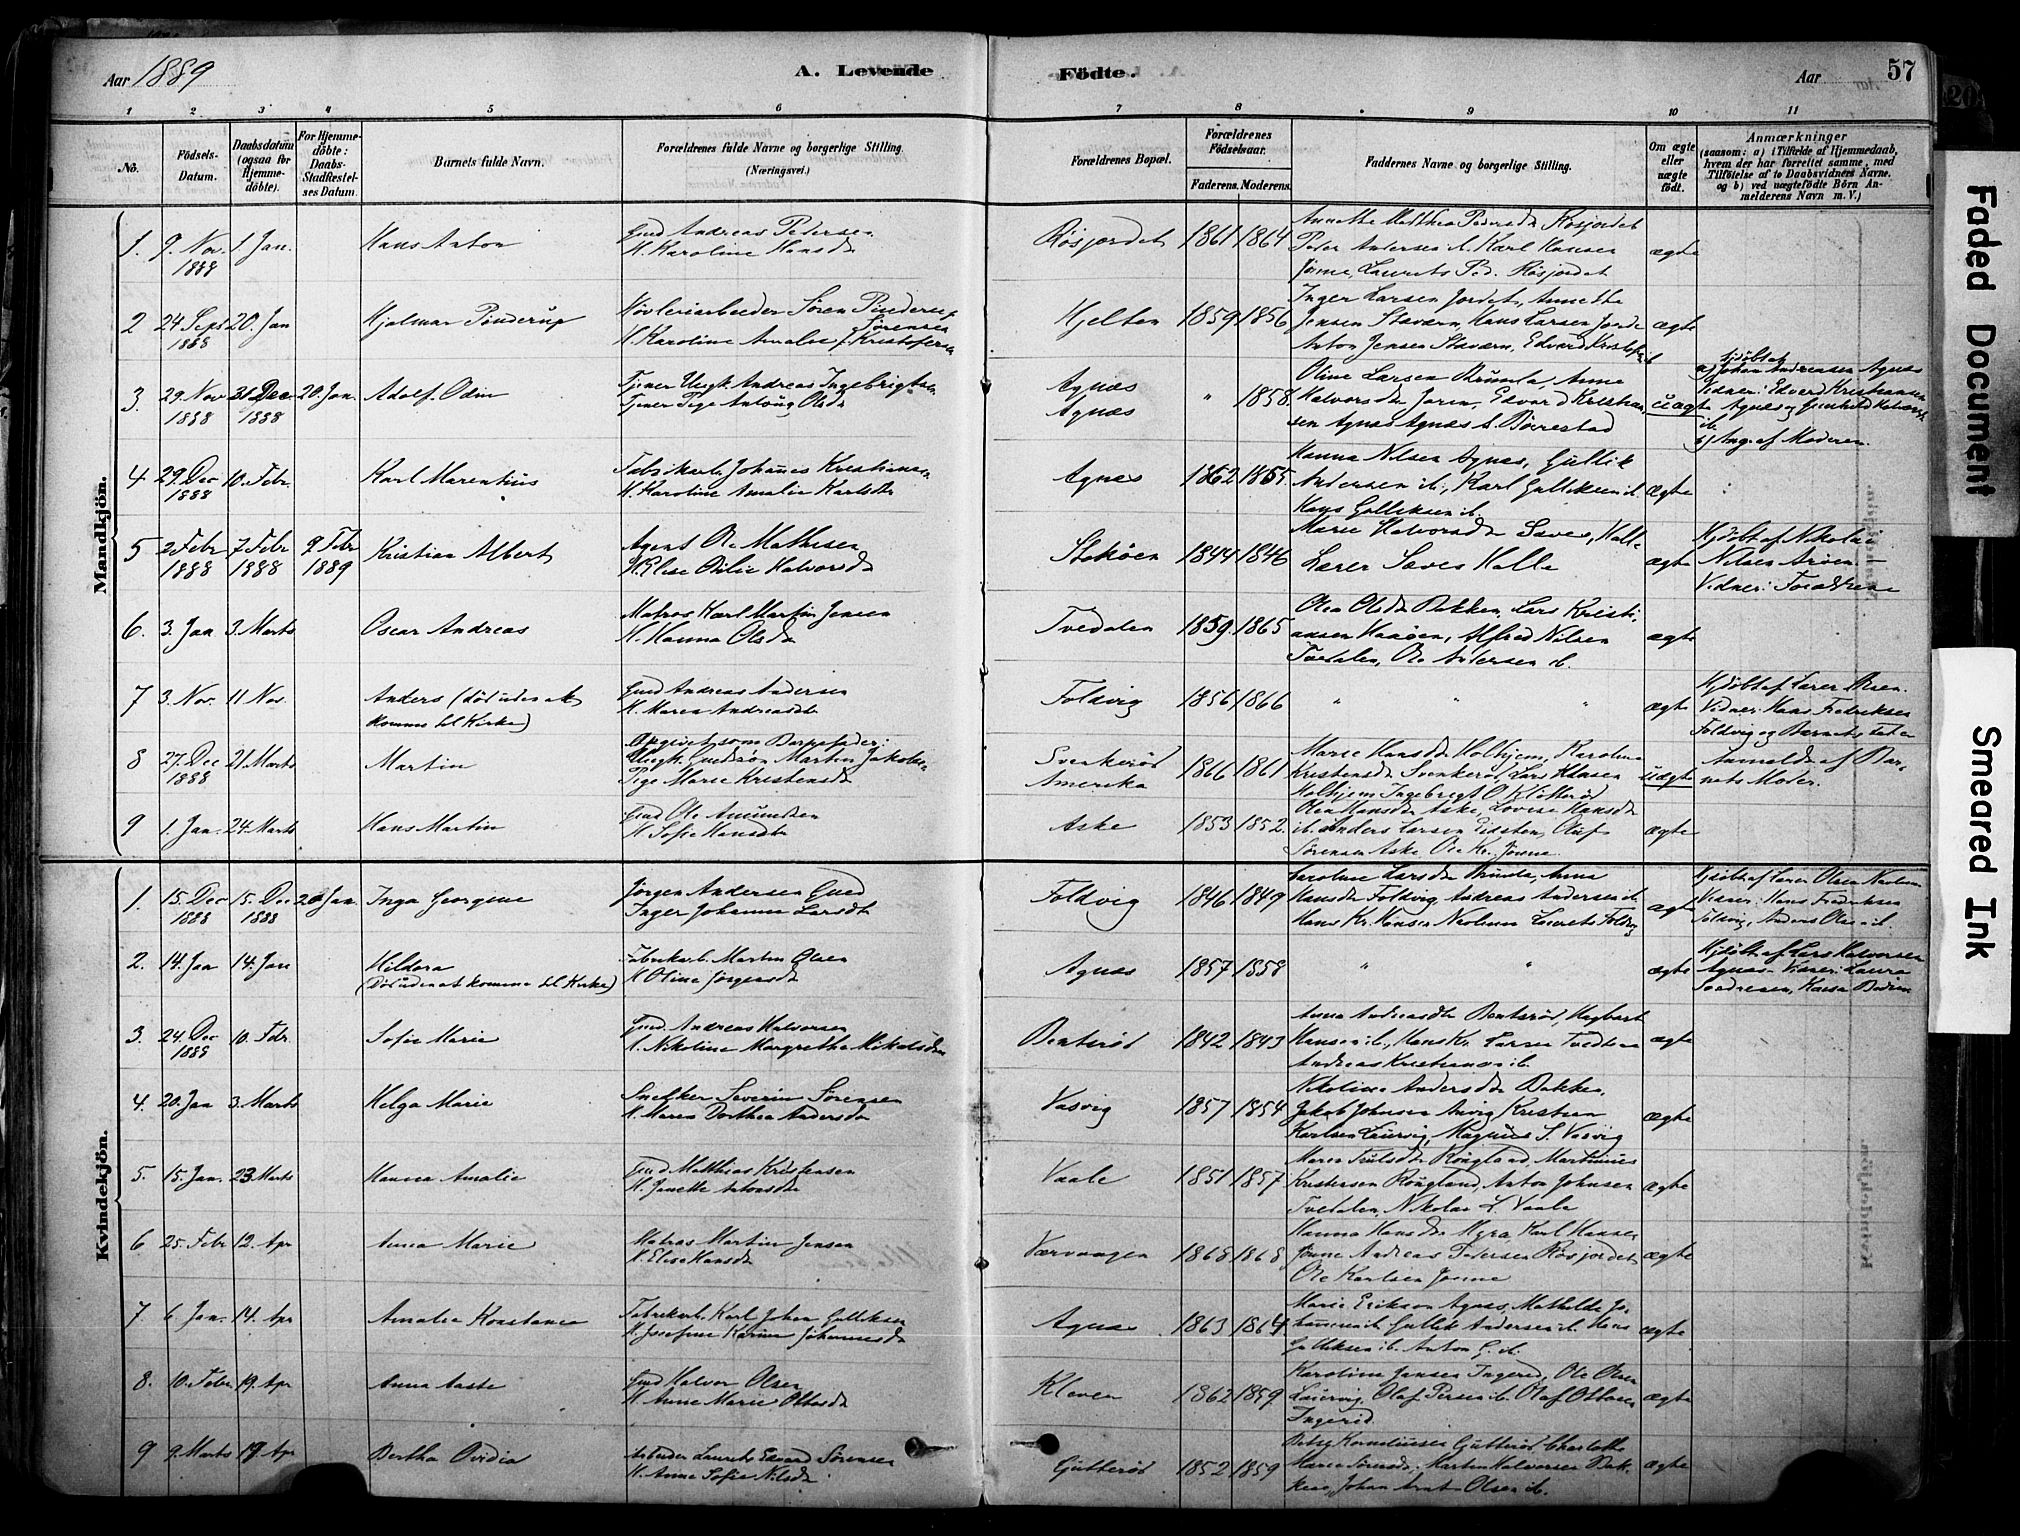 Aar 1889
A. Levende Födte.
Aar
57
1 2 3 4 5 6 7 8 9 10 11
No.
Födsels-Datum.
Daabsdatum (ogsaa for Hjemmedöbte).
For Hjemmedöbte: Daabs-Stadfæstelses Datum.
Barnets fulde Navn.
Forældrenes fulde Navne og borgerlige Stilling. (Næringsvei.)
Forældrenes Bopæl.
Forældrenes Födselsaar.
Faderens. Moderens.
Faddernes Navne og borgerlige Stilling.
Om ægte eller uægte födt.
Anmærkninger
(saasom: a) i Tilfælde af Hjemmedaab, hvem der har forrettet samme, med Tilföielse af to Daabsvidners Navne, og b) ved uægtefödte Börn Anmelderens Navn m. V.)
Mandkjön.
1. 9. Nov. 1888 1. Jan. Hans Anton
Gmd Andreas Pedersen
H. Karoline Hansdr
Røsjordet 1861 1864
Annette Matthea Pedersdr Røsjordet
Peter Andersen ib. Karl Hansen
Jonne, Laurits Ped. Røsjordet
ægte
2 24. Sept 1888 20. Jan Hjalmar Pinderup
Høvleriarbeider Søren Pinderup Sørensen
H. Karoline Amalie f. Kristofersen
Hjelten 1859 1856
Inger Larsen Jordet, Annette
Jensen Stavern, Hans Larsen Jorde
Anton Jensen Stavern, Edvard Kristofersen
ægte
3. 29. Nov 1888 31 Dec 1888 20. Jan. Adolf Odin
Tjener Ungk. Andreas Ingebrigtsen
Tjener Pige Antona Olsdr
Agnæs
Agnæs
" 1858.
Oline Larsen Brunla, Anna
Halvorsdr Joren, Edvard Kristiansen Agnæs
uægte
a) Hjdøbt af Johan Andreasen Agnæs
Vidner: Edvard Kristiansen
Agnæs og Gunhild Halvorsdr ib.
b) Ang. af Moderen.
4 29. Dec 1888 10. Febr. Karl Marentius
Fabrikarb. Johannes Kristiansen
H. Karoline Amalie Karlsdr
Agnæs 1862 1865
Hanna Nilsen Agnæs, Gullik
Andersen ib., Karl Gulliksen ib.
Hans Gulliksen ib.
ægte
5 2 Febr 1888 7 Febr 1888 9 Febr 1889 Kristian Albert
Agent Ole Mathisen
H. Elise Otilie Halvorsdr
Stokøen 1844 1846
Marie Halvorsdr Saves, Halle
Lærer Sæves Halle
ægte
Hjdøbt af Nikolai
Nilsen Arøen
Vidner: Forældrene
6. 3. Jan 3. Marts Oscar Andreas
Matros Karl Martin Jensen
H. Hanna Olsdr
Tvedalen 1859. 1865
Olea Olsdr Bakken, Lars Kristiansen Haaøen, Alfred Nilsen
Tvedalen, Ole Andersen ib.
ægte
7 3. Nov. 11 Nov. Anders (död uden at komme til Kirke)
Gmd Andreas Andersen
H. Maren Andreasdr
Foldvig 1856 1866
" "
ægte
Hjdøbt af Lærer Olsen.
Vidner: Hans Fredriksen
Foldvig og Barnets Fader
8 27. Dec 1888 21. Marts Martin
Opgivet som Barnefader:
Ungk. Gudesøn Martin Jakobsen
Pige Marie Kristensdr
Svenkerød
Amerika
1866 1861
Marie Hansdr Holhjem, Karoline
Kristensdr Svenkerød, Lars Klasen
Holhjem, Ingebregt O. Klotterød
uægte
Anmeldt af Barnets Moder.
9 1. Jan. 24. Marts Hans Martin
Gmd Ole Amundsen
H. Sofie Hansdr
Aske 1853 1852.
Olea Hansdr Aske, Lovise Hansdr
ib. Anders Larsen Eidsten, Oluf
Sørensen Aske, Ole Kr. Jonne.
ægte
Kvindekjön.
1. 15. Dec 1888 15. Dec 1888 20 Jan. Inga Georgine
Jörgen Andersen Gmd
Inger Johanne Larsdr
Foldvig 1846 1849
Karoline Larsdr Brunla, Anna
Hansdr Foldvig, Andreas Andersen ib.
Hans Kr. Hansen Naolmen Laurits Foldvig
ægte
Hjdøbt af Lærer Olsen
Vidner: Hans Fredriksen
Foldvig, Anders Olsen ib.
2. 14. Jan 14. Jan Hildora
(död uden at komme til Kirke)
Fabrikarb. Martin Olsen
H. Olina Jørgensdr
Agnæs 1857 1858
" "
ægte
Hjdøbt af Lars Halvorsen
Agnæs. Vidner: Laura
3. 24. Dec 1888 10. Febr. Sofie Marie
Gmd. Andreas Halvorsen
H. Nikoline Margrethe Nikolaisdr
Bentsrød 1842 1843
Anna Andreasdr Bentsrød, Hagbart
Hansen ib., Hans Kr. Larsen Tvedten
Andreas Kristiansen ib.
ægte
4. 20. Jan 3. Marts Helga Marie
Snedker Severin Sørensen
H. Maren Dorthea Andersdr
Vasvig 1857 1854
Nikoline Andersdr Bakken,
Jakob Johnsen Anvig, Kristian
Karlsen Laurvig, Magnus S. Vasvig
ægte
5. 15. Jan. 23. Marts Hanna Amalie
Gmd. Matthias Kristensen
H. Janette Antonsdr
Vaale 1851 1857
Maren Trulsdr Rougland, Martinius
Kristensen Rougland, Anton Johnsen
Tvedalen, Nikolai L. Vaale
ægte
6 25. Febr 12. Apr Anna Marie
Matros Martin Jensen
H. Elise Hansdr
Værvaagen 1868 1868
Hanna Hansdr Myra, Karl Hansen
Jonne, Andreas Pedersen Røsjordet
Ole Karlsen Jonne
ægte
7 6 Jan. 14. Apr Amalia Konstance
Fabrikarb. Karl Johan Gulliksen
H. Josefine Karine Johannesdr
Agnæs 1863 1864
Marie Eriksen Agnæs, Mathilde Johannesen ib. Gullik Andersen ib. Hans
Gulliksen ib. Anton G. ib.
ægte
8. 10. Febr. 19. Apr Anna Aaste
Gmd Halvor Olsen
H. Anne Marie Ottosdr
Klaven 1862 1859
Karoline Jansen Ingerid, Ole Olsen
Laurvig, Olaf Persen ib. Olaf Ottosen
Ingerid.
ægte
9 9. Marts 19. Apr Bertha Ovidia
Arbeider Laurits Edvard Sørensen
H. Anne Sofie Nilsdr
Gutterød 1852 1859
Betsy Korneliusen Gutterød, Charlotte
Marie Simensdr, Martin Halvorsen Bakken, Johan Arnt Olsen ib.
ægte
Faded Document
Smeared Ink